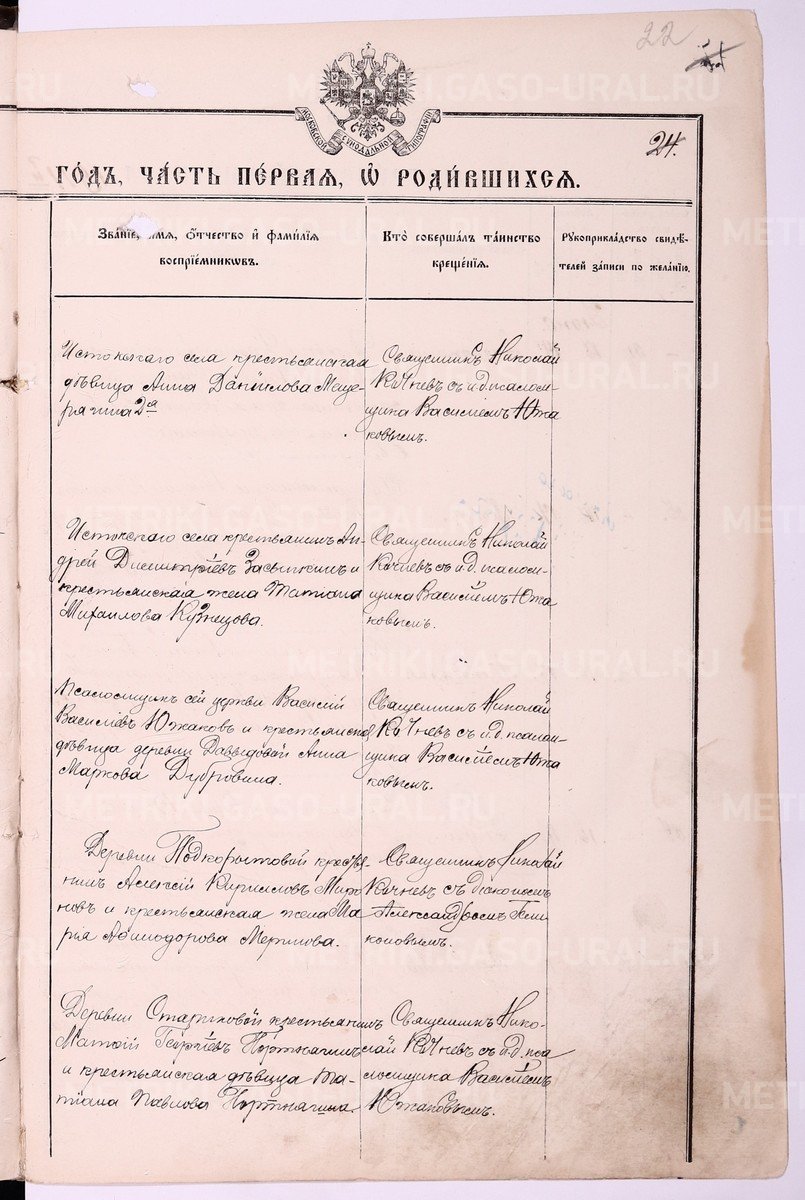 22
24.
МОСКОВСКОЙ СѴНОДАЛЬНОЙ ТИПОГРАФІИ
ГОДЪ, ЧАСТЬ ПЕРВАЯ, Ѡ РОДИВШИХСЯ.
Званіе, имя, отчество и фамилія
воспріемниковъ.
Кто совершалъ таинство
крещенія.
Рукоприкладство свидѣ-
телей записи по желанію.
Истокскаго села крестьянская
дѣвица Анна Даніилова Меще-
рягина 2я
Священникъ Николай
Кычневъ съ и.д. псалом-
щика Василіемъ Южа
ковымъ.
Истокскаго села крестьянинъ Ан-
дрей Димитріевъ Засыпкинъ и
крестьянская жена Татіана
Михаилова Кузнецова.
Священникъ Николай
Кычневъ съ и.д. псалом-
щика Василіемъ Южа
ковымъ.
Псаломщикъ сей церкви Василій
Василіевъ Южаковъ и крестьянская
дѣвица деревни Давыдовой Анна
Маркова Дубровина.
Священникъ Николай
Кычневъ съ и.д. псалом-
щика Василіемъ Южа
ковымъ.
Деревни Подкорытовой крестья
нинъ Алексій Кирилловъ Миро
новъ и крестьянская жена Ма-
рья Аполлодорова
Священникъ Николай
Кычневъ съ діакономъ
Александромъ
Деревни крестьянинъ
Матѳій Георгіевъ Портнягинъ
и крестьянская дѣвица Та-
тіана Павлова Портнягина
Священникъ Нико-
лай Кычневъ съ и.д. пса
ломщика Василіемъ
Южаковымъ.
METRIKI.GASO-URAL.RU